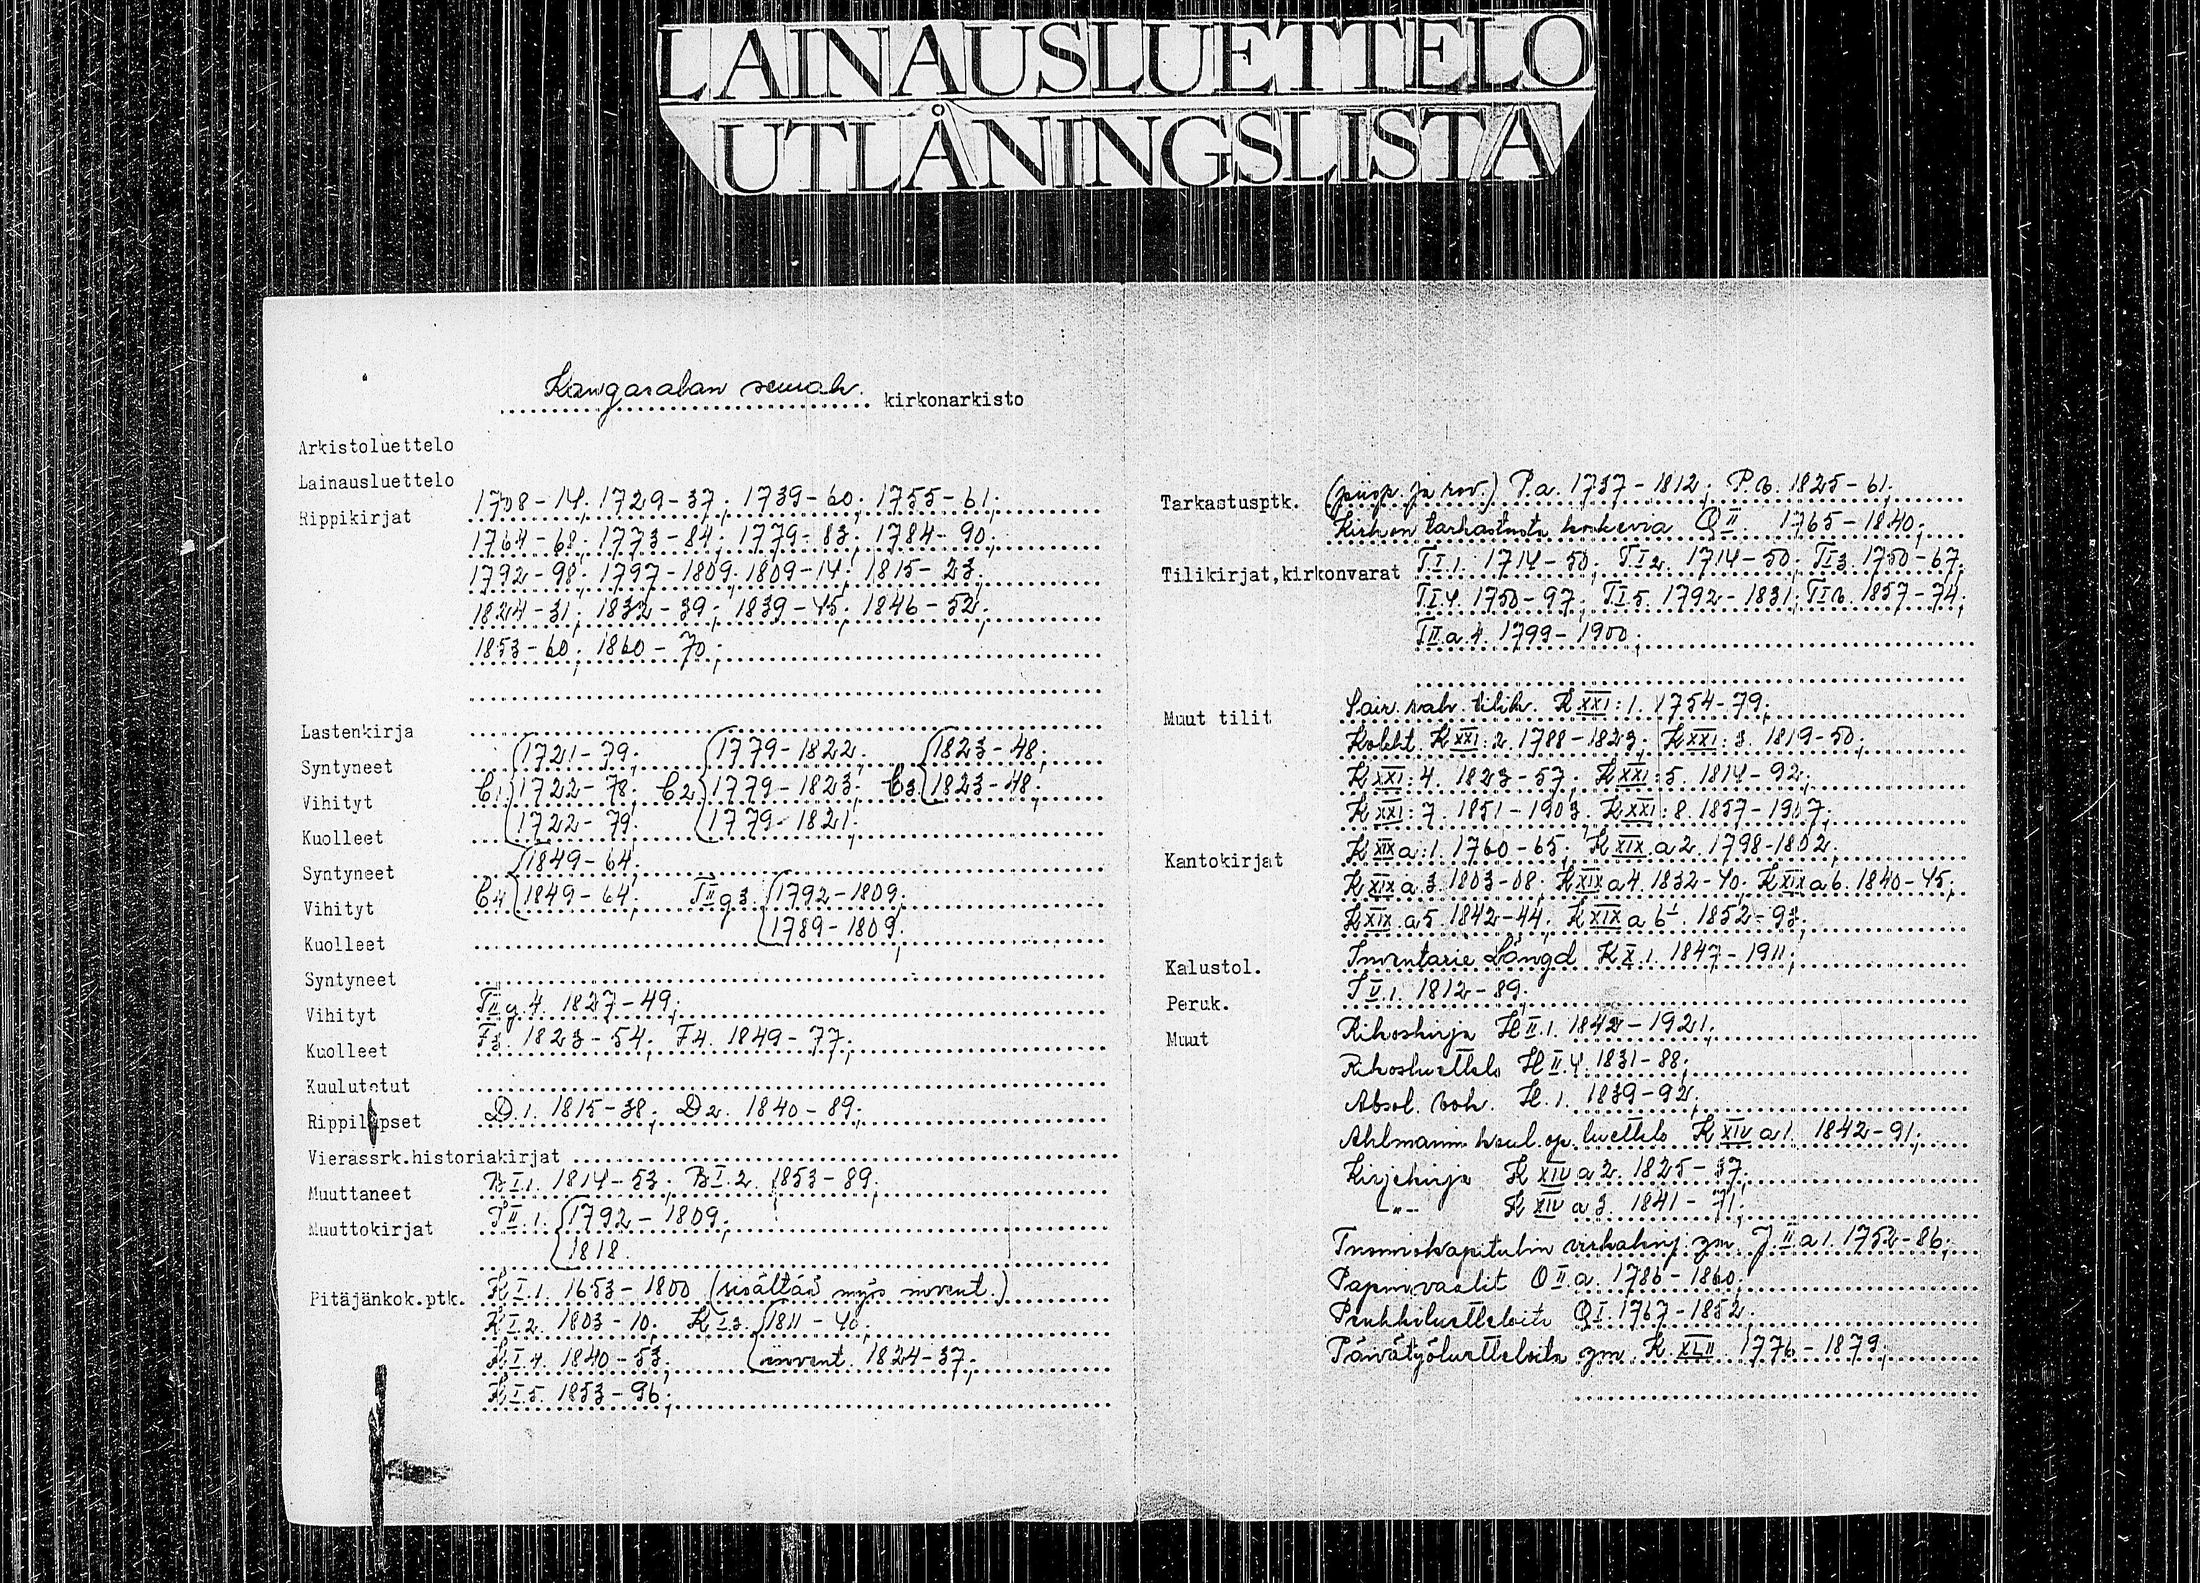 LAINAUSLUETTELO
UTLÅNINGSLISTA
Kangasalan seurak. kirkonarkisto
Arkistoluettelo
Lainausluettelo
Rippikirjat 1708-14; 1729-37; 1739-60; 1755-61;
1764-68; 1773-84; 1779-83; 1784-90;
1792-98; 1797-1809; 1809-14; 1815-23;
1824-31; 1832-39; 1839-45; 1846-52;
1853-60; 1860-70;
Lastenkirja
Syntyneet 1721-79; 1779-1822; 1823-48;
Vihityt C1 1722-78; C2 1779-1823; C3 1823-48;
Kuolleet 1722-79; 1779-1821;
Syntyneet 1849-64;
Vihityt C4 1849-64; TII g3. 1792-1809;
Kuolleet 1789-1809;
Syntyneet
Vihityt TII g.4. 1827-49;
Kuolleet F3. 1823-54; F4. 1849-77;
Kuulutetut
Rippilapset D.1. 1815-38; D2. 1840-89;
Vierassrk.historiakirjat
Muuttaneet BI.1. 1814-53; BI.2. 1853-89;
Muuttokirjat II.1. 1792-1809;
1818.
Pitäjänkok.ptk. KI.1. 1653-1800 (sisältää myös invent.)
KI.2. 1803-10; KI.3. 1811-40;
KI.4. 1840-53; invent. 1824-37;
KI.5. 1853-96;
Tarkastusptk. (piisp. ja rov.) P.a. 1737-1812; P.b. 1825-61;
Kirkon tarkastusta kokevia QII. 1765-1840;
Tilikirjat,kirkonvarat TI.1. 1714-50; TI2. 1714-50; TI3. 1750-67;
TI.4. 1750-97; TI.5. 1792-1831; TI6. 1857-74;
TII.a.4. 1799-1900;
Muut tilit Sair. rah. tilik. KXXI:1. 1754-79;
Kolleht. KXXI:2. 1788-1823; KXXI:3. 1819-50;
KXXI:4. 1823-57; KXXI:5. 1814-92;
KXXI:7. 1851-1903. KXXI:8. 1857-1907;
Kantokirjat KXIXa:1. 1760-65; KXIX.a2. 1798-1802;
KXIX a.3. 1803-08; KXIXa4. 1832-40; KXIXa6. 1840-45;
KXIX.a5. 1842-44; KXIX a 6¹. 1852-93;
Kalustol. Inventarie Längd KX.1. 1847-1911;
Peruk. IV.1. 1812-89;
Muut Rikoskirja HII.1. 1842-1921;
Rikosluettelo HII.4. 1831-88;
Absol. H.1. 1839-92;
Ahlmannin koul. op. luettelo KXIV a1. 1842-91;
Kirjekirja KXIV a2. 1825-37;
-"- KXIV a3. 1841-71;
Tuomiokapitulin ym. JII.a1. 1752-86;
Papinvaalit OII.a. 1786-1860;
Penkkiluetteloita QI. 1767-1852.
Päivätyöluetteloita ym. K.XLII. 1776-1879;